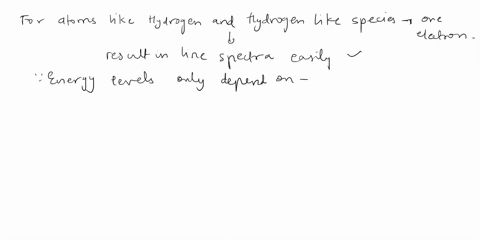 For atoms like Hydrogen and Hydrogen like species → one electron.
↓
result in line spectra easily ✓
∵ Energy levels only depend on -